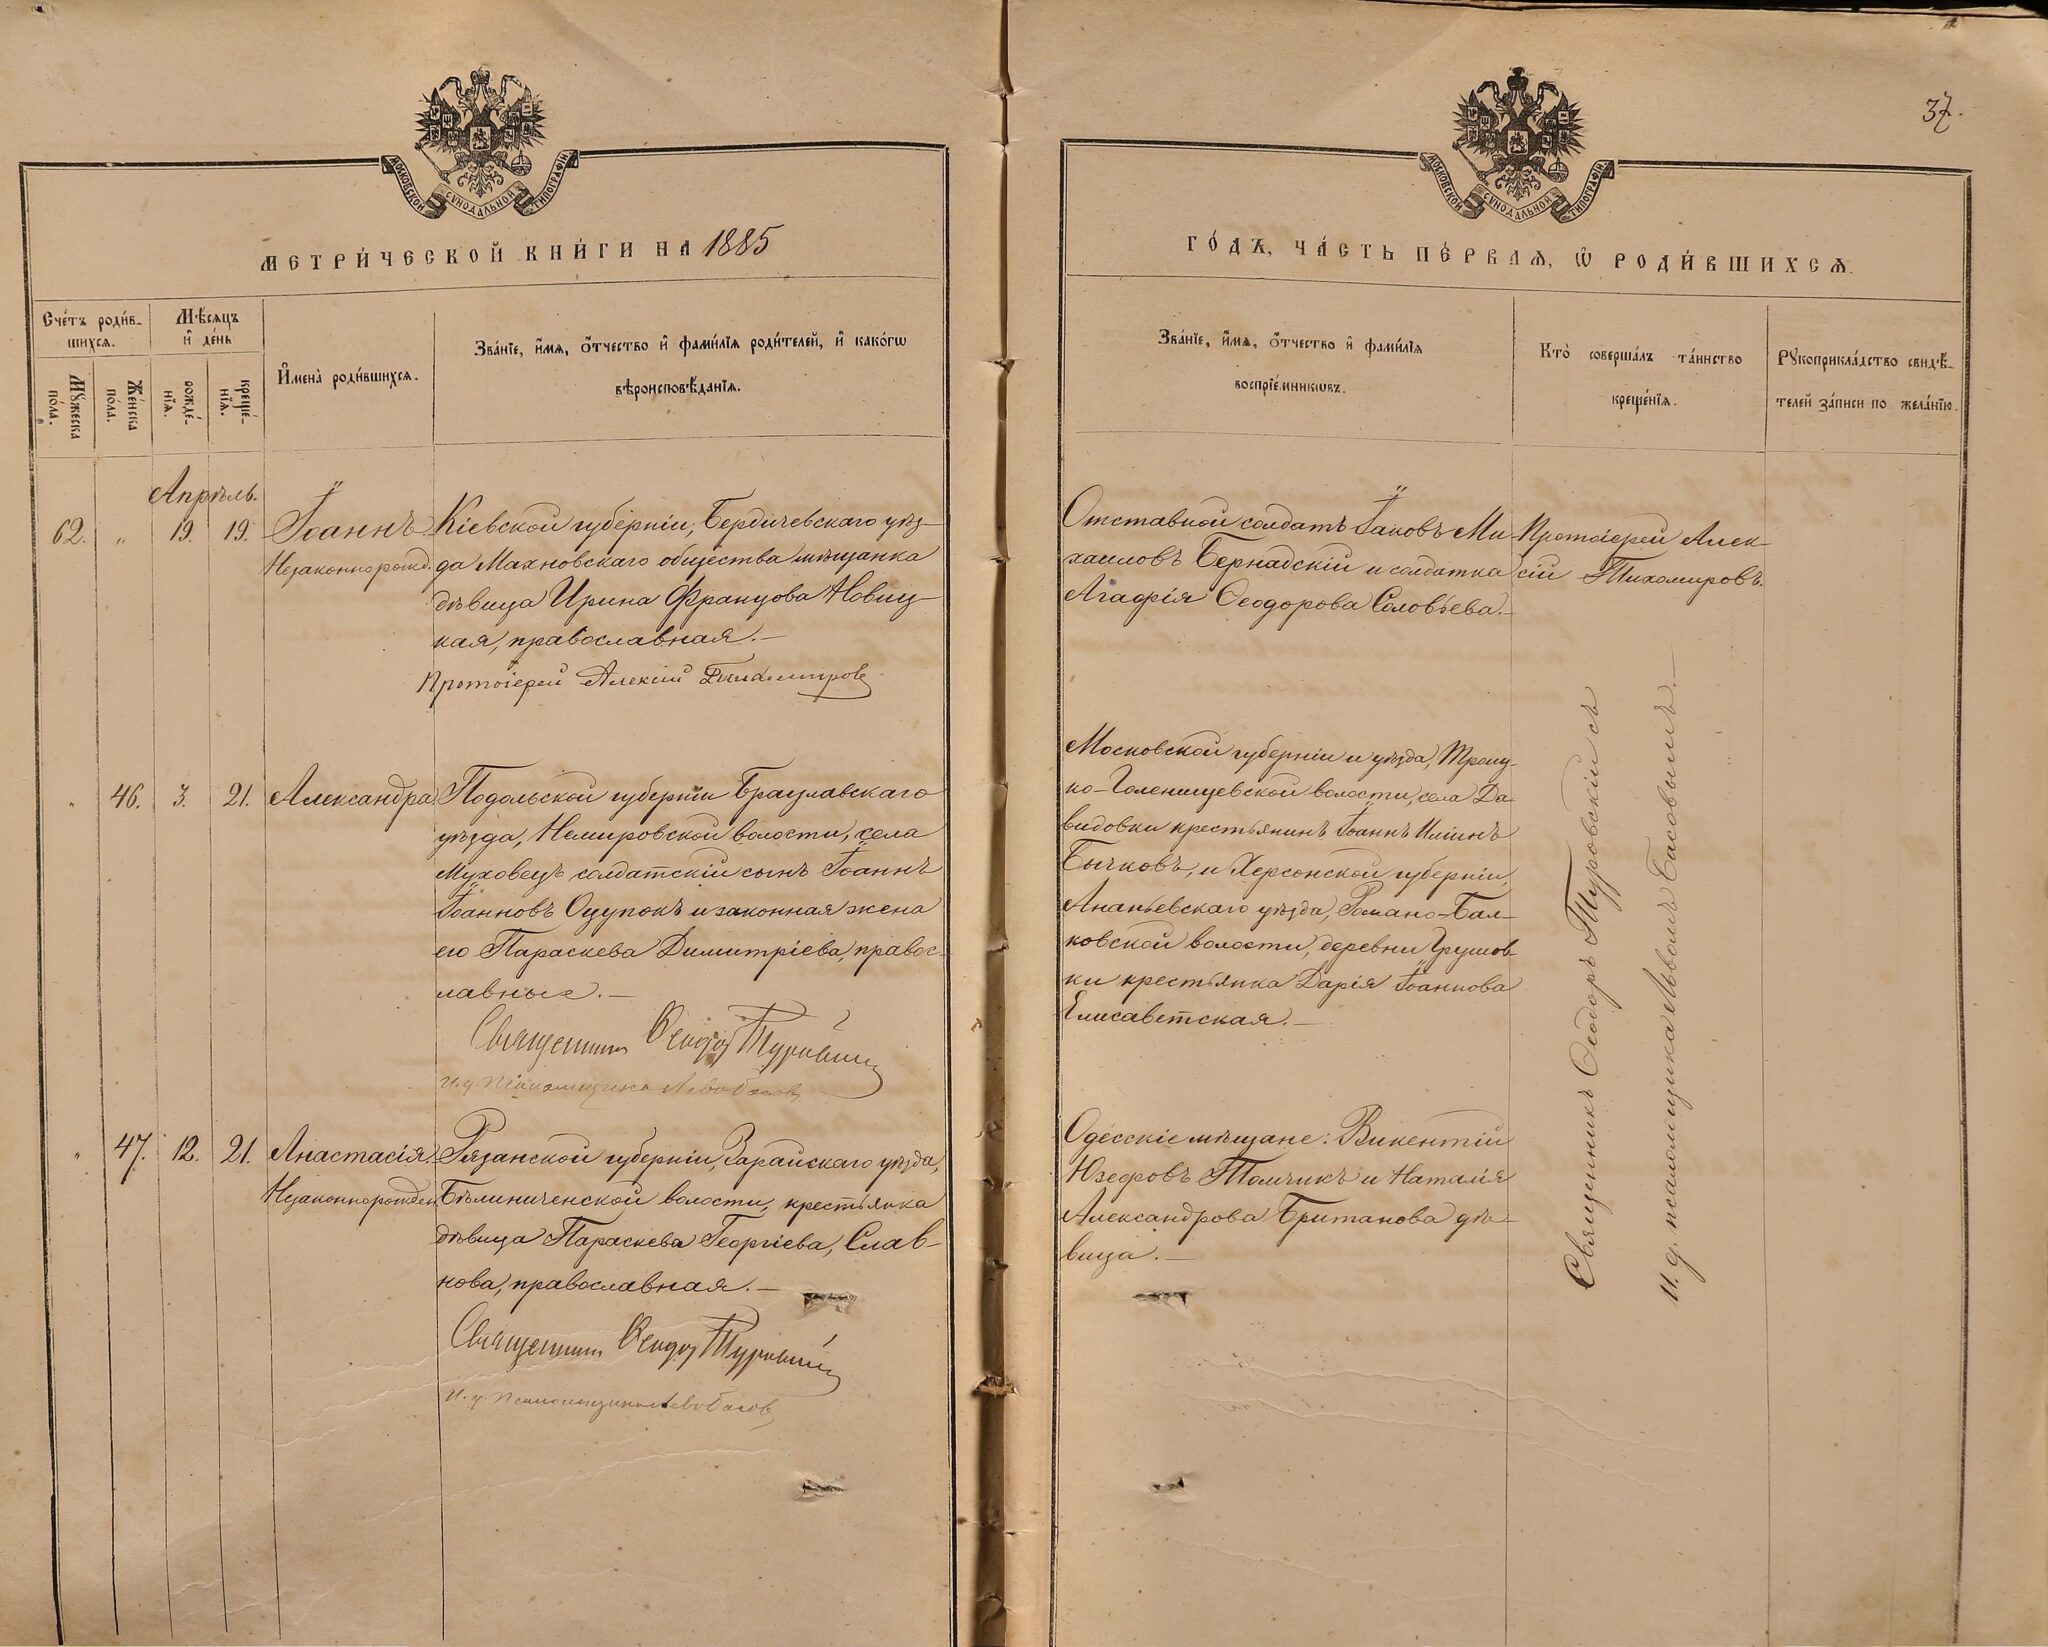 37.
МОСКОВСКОЙ СУНОДАЛЬНОЙ ТИПОГРАФІИ
МОСКОВСКОЙ СУНОДАЛЬНОЙ ТИПОГРАФІИ
МЕТРИ́ЧЕСКОЙ КНИ́ГИ НА 1885
ГО́ДЪ, ЧА́СТЬ ПЕ́РВАѦ, Ѡ҆ РОДИ́ВШИХСѦ.
Сче́тъ роди́в-
шихсѧ.
Мꙋ́жеска по́ла.
Же́нска по́ла.
Мѣ́сѧцъ и҆ де́нь
рожде́-
нїѧ.
креще́-
нїѧ.
И҆мена̀ роди́вшихсѧ.
Зва́нїе, и҆́мѧ, ѻ҆́тчество и҆ фами́лїѧ роди́телей, и҆ како́гѡ
вѣроисповѣ́данїѧ.
Зва́нїе, и҆́мѧ, ѻ҆́тчество и҆ фами́лїѧ
воспрїе́мникѡвъ.
Кто̀ соверша́лъ та́инство
креще́нїѧ.
Рꙋкоприкла́дство свидѣ́-
телей за́писи по жела́нїю.
Апрѣль.
62. „ 19. 19. Іоаннъ
Незаконнорожд.
Кіевской губерніи, Бердичевскаго уѣз-
да Махновскаго общества мѣщанка
дѣвица Ирина Францова Новиц-
кая, православная.—
Протоіерей Алексій Тихомировъ
Отставной солдатъ Іаковъ Ми
хаиловъ Бернадскій и солдатка
Агафія Ѳеодорова Соловьева.—
Протоіерей Алек-
сій Тихомировъ.
„ 46. 3. 21. Александра
Подольской губерніи Брацлавскаго
уѣзда, Немировской волости, села
Муховецъ солдатскій сынъ Іоаннъ
Іоанновъ Оцупокъ и законная жена
его Параскева Димитріева, правос-
лавные.—
Священникъ Ѳеодоръ Туровскій
и. д. псаломщика Левъ Басовъ
Московской губерніи и уѣзда, Троиц-
ко-Голенищевской волости, села Да
видовки крестьянинъ Іоаннъ Илiинъ
Бычковъ, и Херсонской губерніи,
Ананьевскаго уѣзда, Романо-Бал-
ковской волости, деревни Грушов-
ки крестьянка Дарія Іоаннова
Елисаветская.—
Священникъ Ѳеодоръ Туровскій съ
и. д. псаломщика Львомъ Басовымъ.—
„ 47. 12. 21. Анастасія.
Незаконнорожден.
Рязанской губерніи, Зарайскаго уѣзда,
Бѣлиниченской волости, крестьянка
дѣвица Параскева Георгіева, Слав-
нова, православная.—
Священникъ Ѳеодоръ Туровскій
и. д. псаломщика Левъ Басовъ
Одесскіе мѣщане: Викентій
Юзефовъ Томчикъ и Наталія
Александрова Британова дѣ-
вица.—